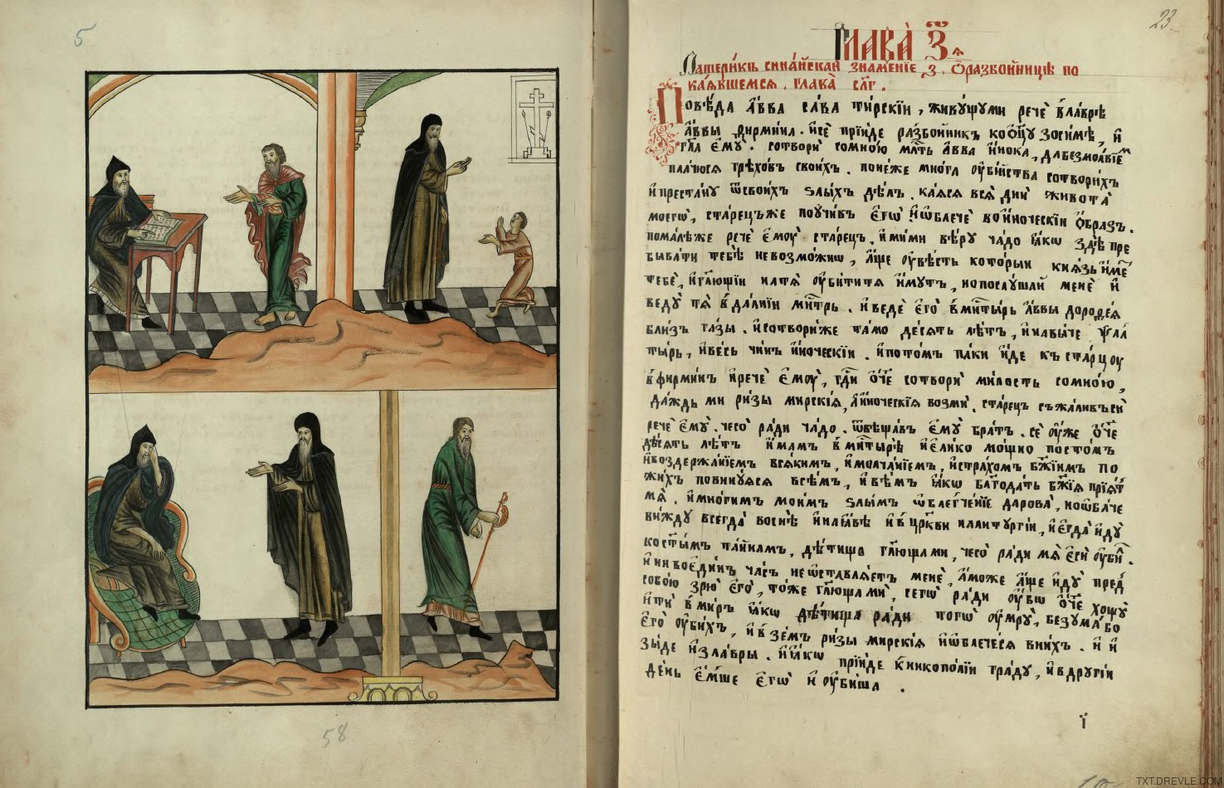 5
58
23
Глава̀ з҃.
Патери́къ сина́йскаи знаме́нїе з҃. Ѡ҆ разбо́йницѣ по
ка́явшемся. глава̀ рл҃г.
Повѣ́да а҆́вва са́ва ти́рскїи, живꙋ́щꙋми речѐ в̾ла́врѣ
а҆́ввы фирми́на. и҆сѐ прїи́де разбо́йникъ коѻ҆тцꙋ̀ зоси́мѣ, и҆
гл҃а е҆мꙋ̀. сотворѝ сомно́ю мл҃ть а҆́вва и҆́нока, дабезмо́лвїем̾
пла́чюся грѣхо́въ свои́хъ. поне́же мно́га ᲂу҆бі́йства сотвори́хъ
и҆преста́нꙋ ѿсвои́хъ ѕлы́хъ дѣ́лъ. ка́яся вся̀ дни̑ живота̀
моегѡ̀, ста́рецъже поꙋчи́въ е҆го̀ и҆ѡ҆блечѐ во и҆́ноческїи ѻ҆́бразъ.
пома́лѣже речѐ е҆мꙋ̀ ста́рецъ. и҆ми́ми вѣ́рꙋ ча́до ꙗ҆́кѡ здѣ̀ пре
быва́ти тебѣ̀ невозмо́жно, а҆́ще ᲂу҆вѣ́сть которыи кня́зь и҆́ме
тебѐ, и҆гл҃ющїи натя̀ ᲂу҆би́титя и҆́мꙋтъ, нопослꙋ́шаи менѐ и҆
ведꙋ̀ тя̀ в̾да́лнїи мн҃трь. и҆ведѐ е҆го̀ в̾мн҃ты́рь а҆́ввы дороѳе́я
бли́зъ га́зы. и҆сотвори́же та́мо де́сять лѣ́тъ, и҆навы́че ѱал
ты́рь, и҆ве́сь чи́нъ и҆́ноческїи. и҆пото́мъ па́ки и҆́де къ ста́рцꙋ
в̾фирми́нъ и҆речѐ е҆мꙋ̀, гдⷭ҇и ѻ҆́тче сотворѝ ми́лость сомно́ю,
да́ждь ми ри́зы мирскі́я, а҆и҆́ноческїя возмѝ. ста́рецъ съжа́ливъси
речѐ е҆мꙋ̀. чесо̀ ра́ди ча́до. ѿвѣща́въ е҆мꙋ̀ бра́тъ. сѐ ᲂу҆́же ѻ҆́тче
де́сять лѣ́тъ и҆́мамъ в̾мн҃ты́рѣ и҆е҆ли́ко мо́щно посто́мъ
и҆воздержа́нїемъ вся́кимъ, и҆молча́нїемъ, и҆стра́хомъ бж҃їимъ по
жи́хъ повинꙋ́яся всѣ́мъ, и҆вѣ́мъ ꙗ҆́кѡ блгода́ть бж҃їя прїя́т
мя̀. и҆мно́гимъ мои́мъ ѕлы́мъ ѡ҆блегче́нїе дарова̀,ноѡ҆ба́че
ви́ждꙋ всегда̀ восні̀ и҆наꙗ҆́вѣ и҆в̾цр҃кви налитꙋргі́и, и҆е҆гда̀ и҆дꙋ̀
косты́мъ та́йнамъ, дѣ́тища гл҃юща ми, чесо̀ ра́ди мя̀ е҆сѝ ᲂу҆би́л̾.
и҆ни воеди́нъ ча́съ не ѡ҆ставля́етъ менѐ, а҆може а҆́ще и҆дꙋ̀ пред
собо́ю зрю̀ е҆го̀, то́же гл҃юща ми, сегѡ̀ ра́ди ᲂу҆́бѡ ѻ҆́тче хощꙋ̀
и҆тѝ в̾ми́ръ ꙗ҆́кѡ дѣ́тища ра́ди тогѡ̀ ᲂу҆мрꙋ̀, безꙋма̀ бо
е҆го̀ ᲂу҆би́хъ, и҆взе́мъ ри́зы мирскі́я и҆ѡ҆блече́ся вни́хъ. и҆ и҆
зы́де и҆зла́вры. и҆ꙗ҆́кѡ прїи́де к̾никопо́лїи гра́дꙋ, и҆в̾дрꙋгі́и
де́нь е҆́мше е҆го̀ и҆ ᲂу҆би́ша.
ї
TXT.DREVLE.COM